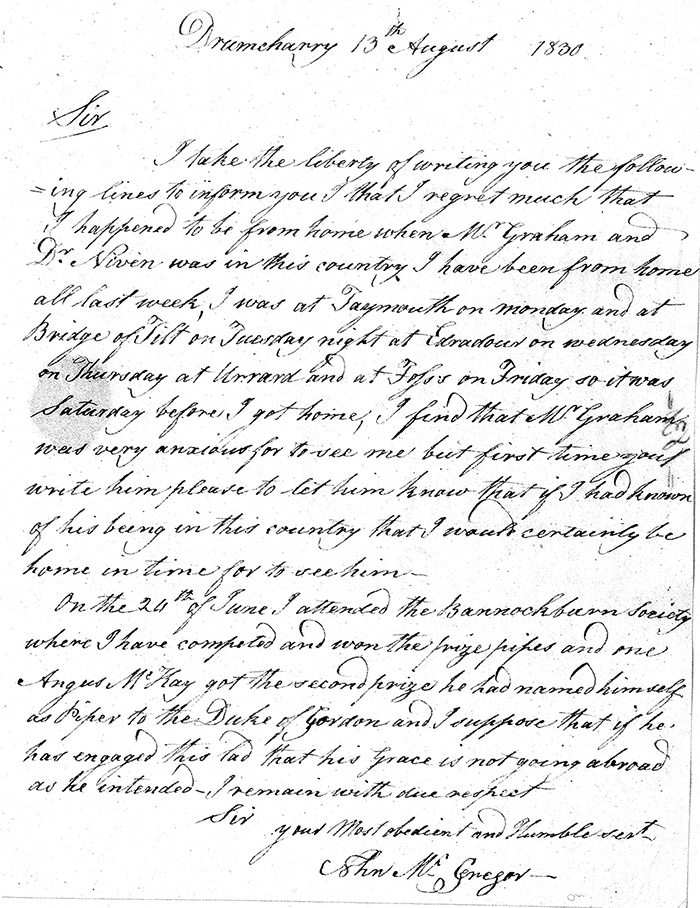 Drumcharry 13th August 1830
Sir
I take the liberty of writing you the follow-
=ing lines to inform you I that I regret much that
I happened to be from home when Mr Graham and
Dr Niven was in this country I have been from home
all last week, I was at Taymouth on monday and at
Bridge of Tilt on Tuesday night at Edradour on wednesday
on Thursday at Urrard and at Foss on Friday so it was
Saturday before I got home, I find that Mr Graham
was very anxious for to see me but first time you'l
write him please to let him know that if I had known
of his being in this country that I would certainly be
home in time for to see him —
On the 24th of June I attended the Bannockburn Society
where I have competed and won the prize pipes and one
Angus McKay got the second prize he had named himself
as Piper to the Duke of Gordon and I suppose that if he
has engaged this lad that his Grace is not going abroad
as he intended — I remain with due respect
Sir
your Most obedient and Humble sert
John Mc Gregor —